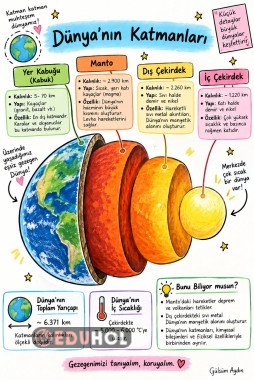 Katman katman
muhteşem
dünyamız!
Dünya'nın Katmanları
Küçük
detaylar
büyük
dünyalar
keşfettirir.
Yer Kabuğu
(Kabuk)
• Kalınlık: ~ 5-70 km
• Yapı: Kayaçlar
(granit, bazalt vb.)
• Özellik: En dış katmandır.
Karalar ve okyanuslar
bu katmanda bulunur.
Manto
• Kalınlık: ~ 2.900 km
• Yapı: Sıcak, yarı katı
kayaçlar (magma)
• Özellik: Dünya'nın
hacminin büyük
kısmını oluşturur.
Levha hareketlerini
sağlar.
Dış Çekirdek
• Kalınlık: ~ 2.260 km
• Yapı: Sıvı halde
demir ve nikel
• Özellik: Hareketli
sıvı metal akıntıları,
Dünya'nın manyetik
alanını oluşturur.
İç Çekirdek
• Kalınlık: ~ 1.220 km
• Yapı: Katı halde
demir ve nikel
• Özellik: Çok yüksek
sıcaklık ve basınca
rağmen katıdır.
Üzerinde
yaşadığımız
eşsiz gezegen
Dünya!
Merkezde
çok sıcak
bir dünya
var!
Dünya'nın
Toplam Yarıçapı
~ 6.371 km
Dünya'nın
İç Sıcaklığı
Çekirdekte
EDUHOL
Bunu Biliyor musun?
• Manto'daki hareketler deprem
ve volkanları tetikler.
• Dış çekirdekteki sıvı metal
Dünya'nın manyetik alanını oluşturur.
• Dünya'nın katmanları, kimyasal
bileşimleri ve fiziksel özellikleriyle
birbirinden ayrılır.
Gezegenimizi tanıyalım, koruyalım.
Gülsüm Aydın